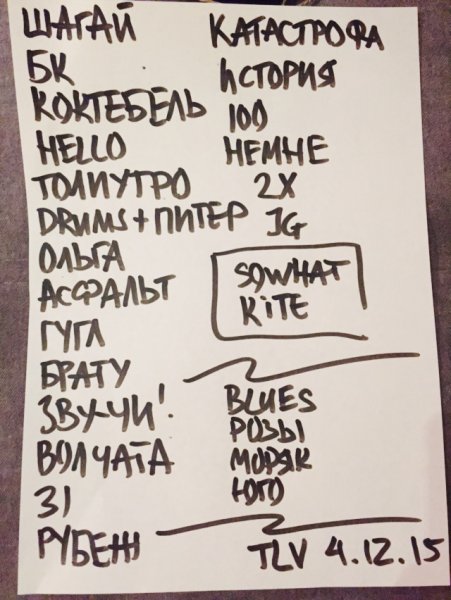 ШАГАЙ
БК
КОКТЕБЕЛЬ
HELLO
ТОЛИУТРО
DRUMS+ПИТЕР
ОЛЬГА
АСФАЛЬТ
ГУГЛ
БРАТУ
ЗВУЧИ!
ВОЛЧАТА
31
РУБЕЖ
КАТАСТРОФА
ИСТОРИЯ
100
НЕМНЕ
2X
JG
SOWHAT
KITE
BLUES
РОЗЫ
МОРЯК
ЮГО
TLV 4.12.15